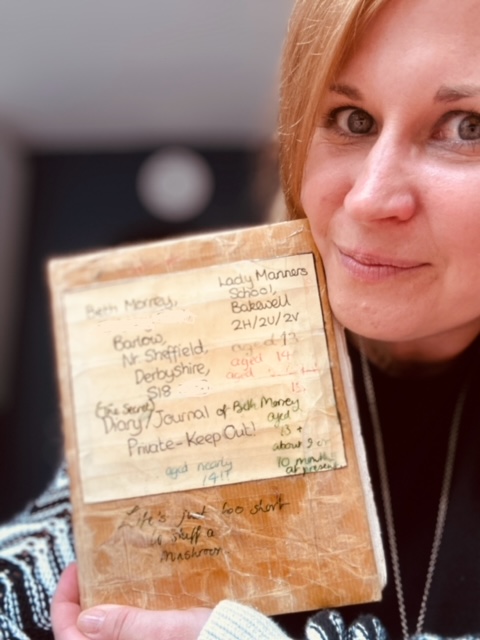 Beth Morrey,
Barlow,
Nr. Sheffield,
Derbyshire,
S18
Lady Manners
School,
Bakewell
2H/2U/2V
aged 13
aged 14
aged
15.
(The Secret)
Diary/Journal of Beth Morrey
Private-Keep Out!
aged
13 +
about 9 or
10 months
at present
aged nearly
14!!
Life's just too short
to stuff a
Mushroom